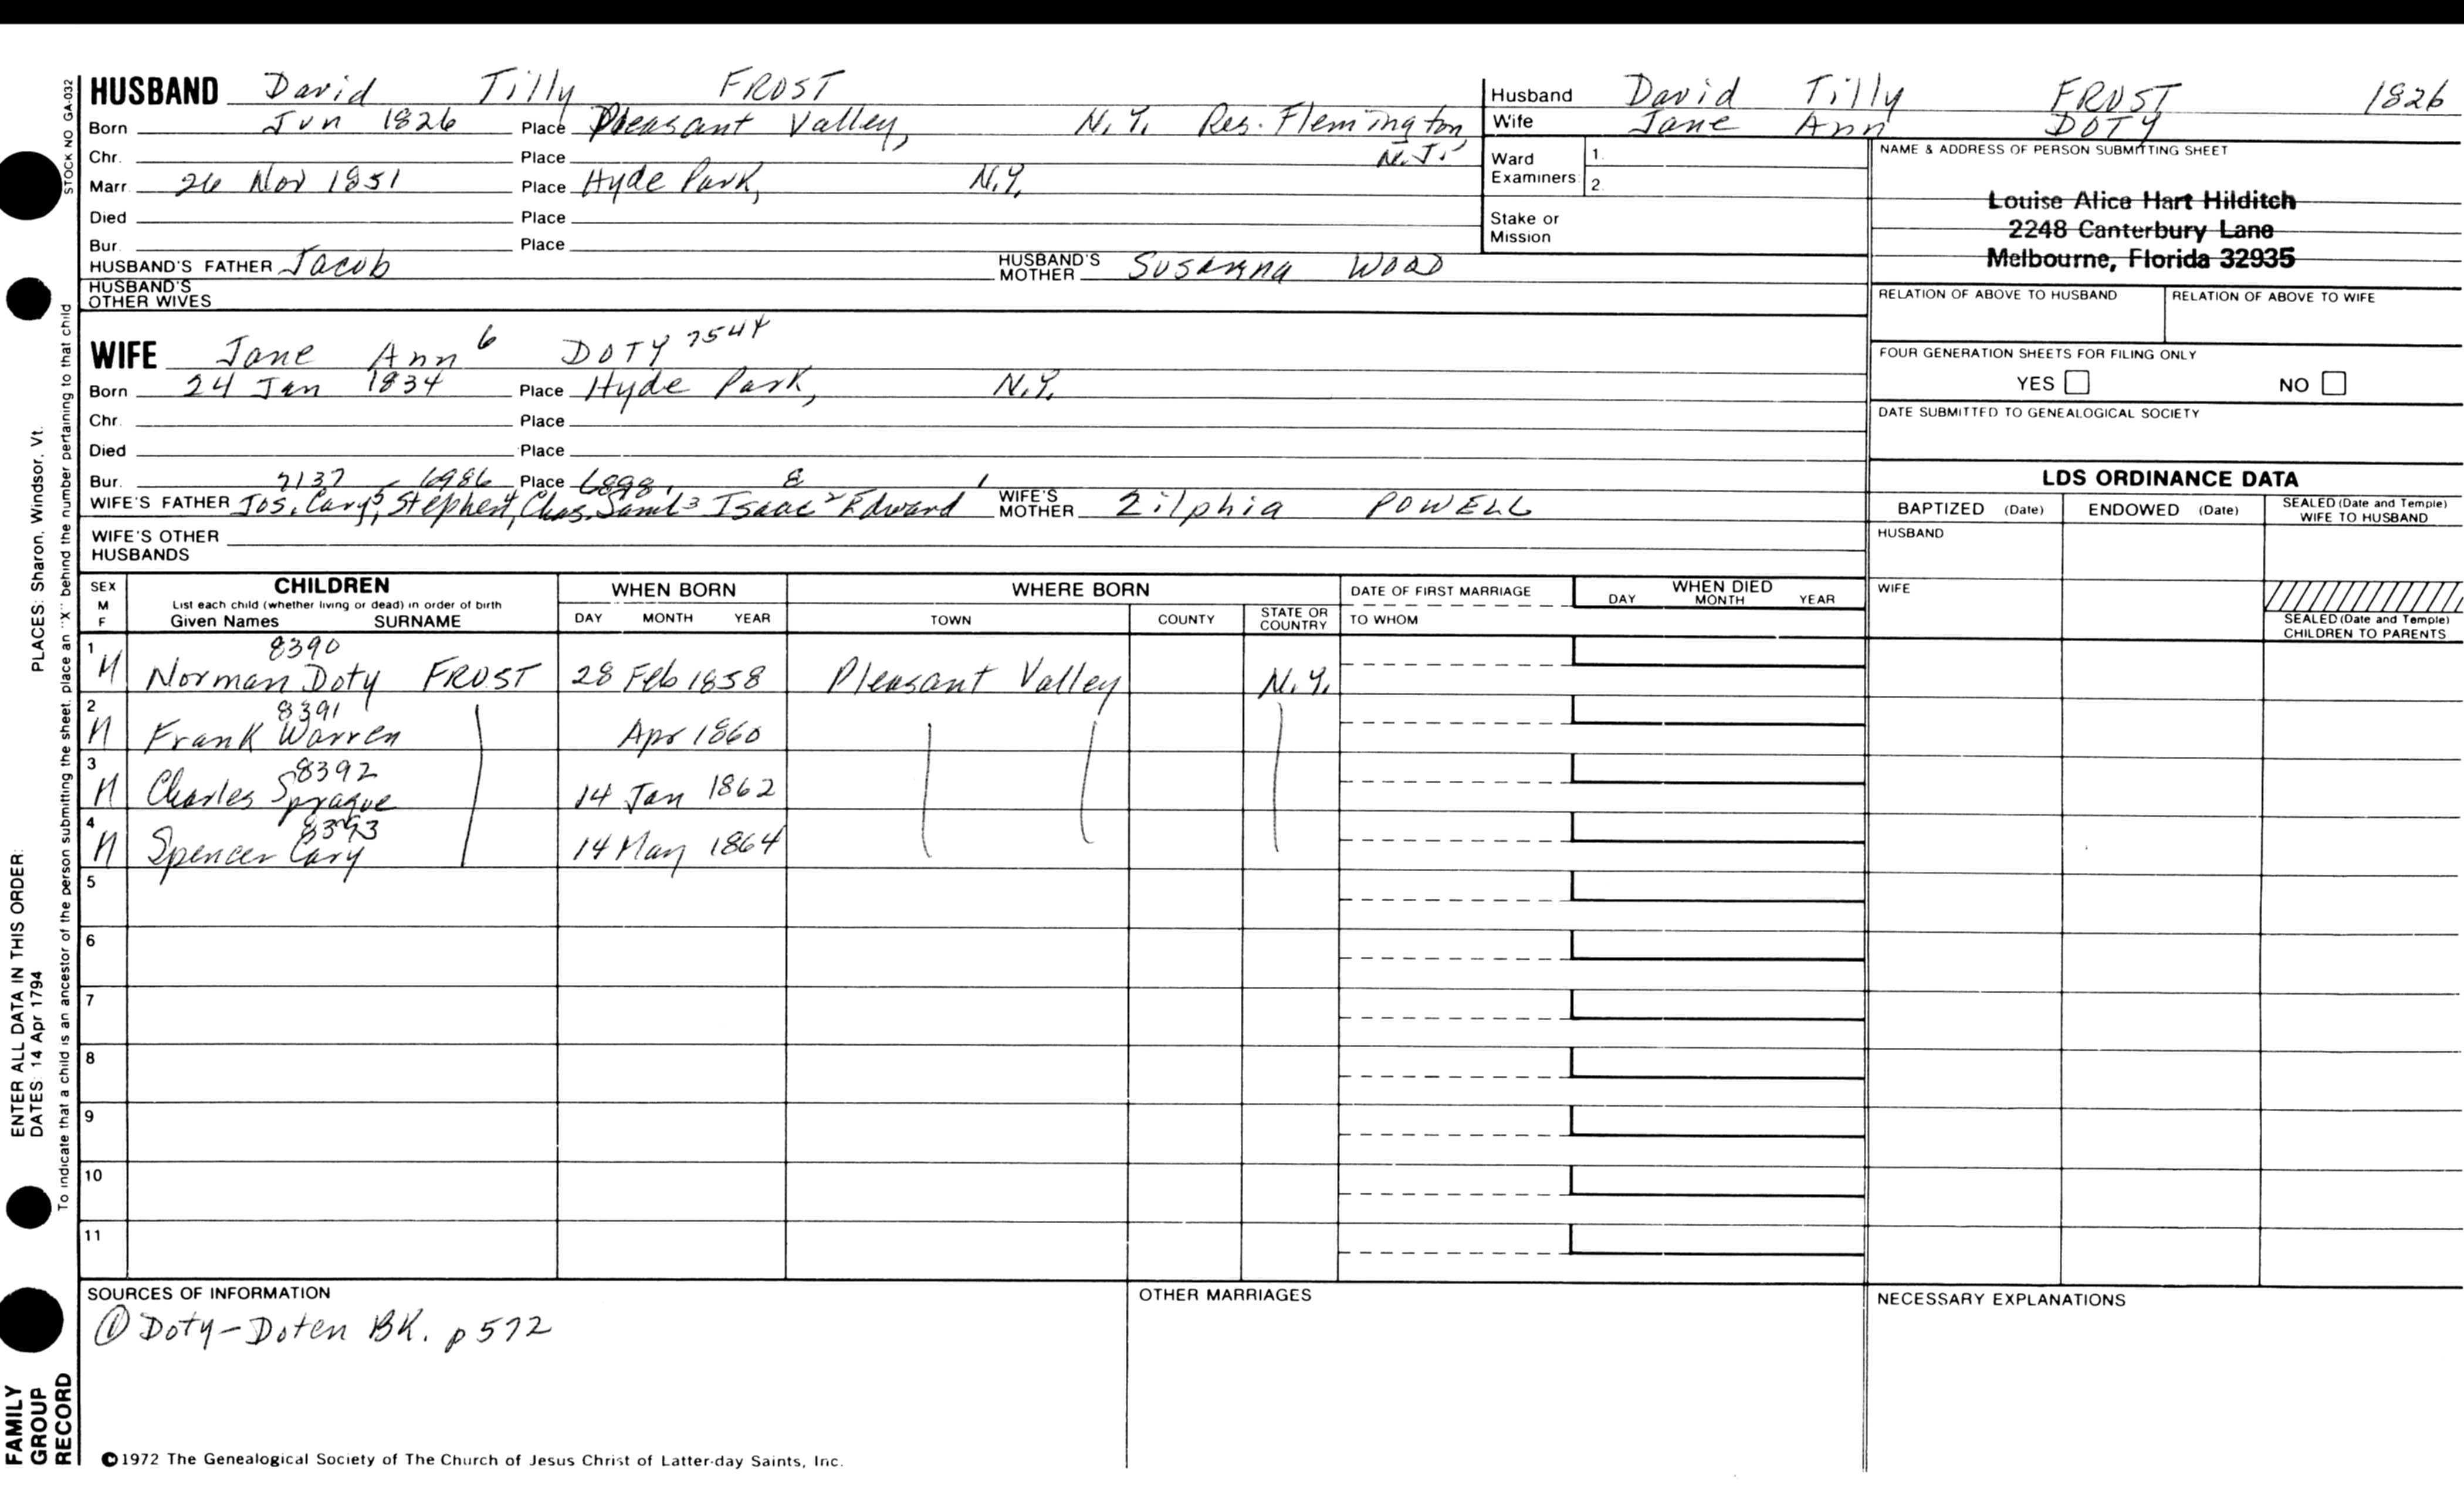 STOCK NO GA-032
HUSBAND David Tilly FROST
Born Jun 1826 Place Pleasant Valley, N.Y. Res. Flemington, N.J.
Chr. Place
Marr. 26 Nov 1851 Place Hyde Park, N.Y.
Died Place
Bur. Place
HUSBAND'S FATHER Jacob HUSBAND'S MOTHER Susanna WOOD
HUSBAND'S OTHER WIVES
WIFE Jane Ann 6 DOTY 7544
Born 24 Jan 1834 Place Hyde Park, N.Y.
Chr. Place
Died Place
Bur. 7137 - 6986 Place 6898, & 1
WIFE'S FATHER Jos. Cary 5, Stephen 4, Chas. Saml 3 Isaac 2 Edward WIFE'S MOTHER Zilphia POWELL
WIFE'S OTHER HUSBANDS
Husband David Tilly FROST 1826
Wife Jane Ann DOTY
Ward Examiners: 1. 2.
Stake or Mission
NAME & ADDRESS OF PERSON SUBMITTING SHEET
Louise Alice Hart Hilditch
2248 Canterbury Lane
Melbourne, Florida 32935
RELATION OF ABOVE TO HUSBAND RELATION OF ABOVE TO WIFE
FOUR GENERATION SHEETS FOR FILING ONLY
YES NO
DATE SUBMITTED TO GENEALOGICAL SOCIETY
LDS ORDINANCE DATA
BAPTIZED (Date) ENDOWED (Date) SEALED (Date and Temple) WIFE TO HUSBAND
HUSBAND
WIFE
SEALED (Date and Temple) CHILDREN TO PARENTS
SEX M F CHILDREN WHEN BORN WHERE BORN DATE OF FIRST MARRIAGE WHEN DIED
List each child (whether living or dead) in order of birth
Given Names SURNAME DAY MONTH YEAR TOWN COUNTY STATE OR COUNTRY TO WHOM DAY MONTH YEAR
8390
1 M Norman Doty FROST 28 Feb 1858 Pleasant Valley N.Y.
8391
2 M Frank Warren Apr 1860
8392
3 M Charles Sprague 14 Jan 1862
8393
4 M Spencer Cary 14 May 1864
5
6
7
8
9
10
11
SOURCES OF INFORMATION OTHER MARRIAGES NECESSARY EXPLANATIONS
① Doty-Doten BK. p 572
©1972 The Genealogical Society of The Church of Jesus Christ of Latter-day Saints, Inc.
FAMILY GROUP RECORD
ENTER ALL DATA IN THIS ORDER:
DATES: 14 Apr 1794
PLACES: Sharon, Windsor, Vt.
To indicate that a child is an ancestor of the person submitting the sheet, place an "X" behind the number pertaining to that child